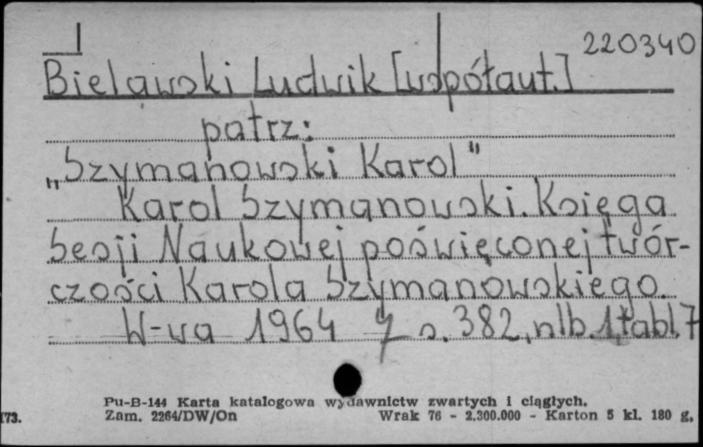 220340
Bielawski Ludwik [współaut.]
patrz:
„Szymanowski Karol"
Karol Szymanowski. Księga
Sesji Naukowej poświęconej twór-
czości Karola Szymanowskiego.
W-wa 1964 s. 382, nlb. 1, tabl. 7
Pu-B-144 Karta katalogowa wydawnictw zwartych i ciągłych.
173. Zam. 2264/DW/On Wrak 76 - 2.300.000 - Karton 5 kl. 180 g.